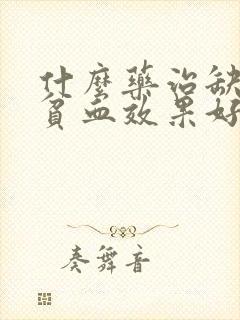 什麼藥治缺
貧血效果好
奏舞音